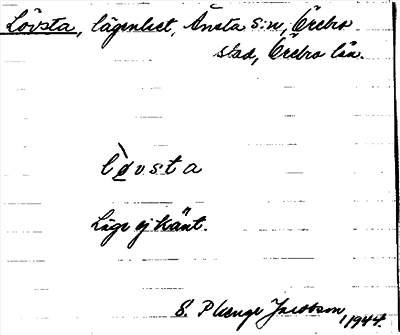 Lövsta, lägenhet, Ånsta s:n, Örebro
stad, Örebro län.
lø̀vsta
Läge ej känt.
S. Plenge Jacobson, 1944